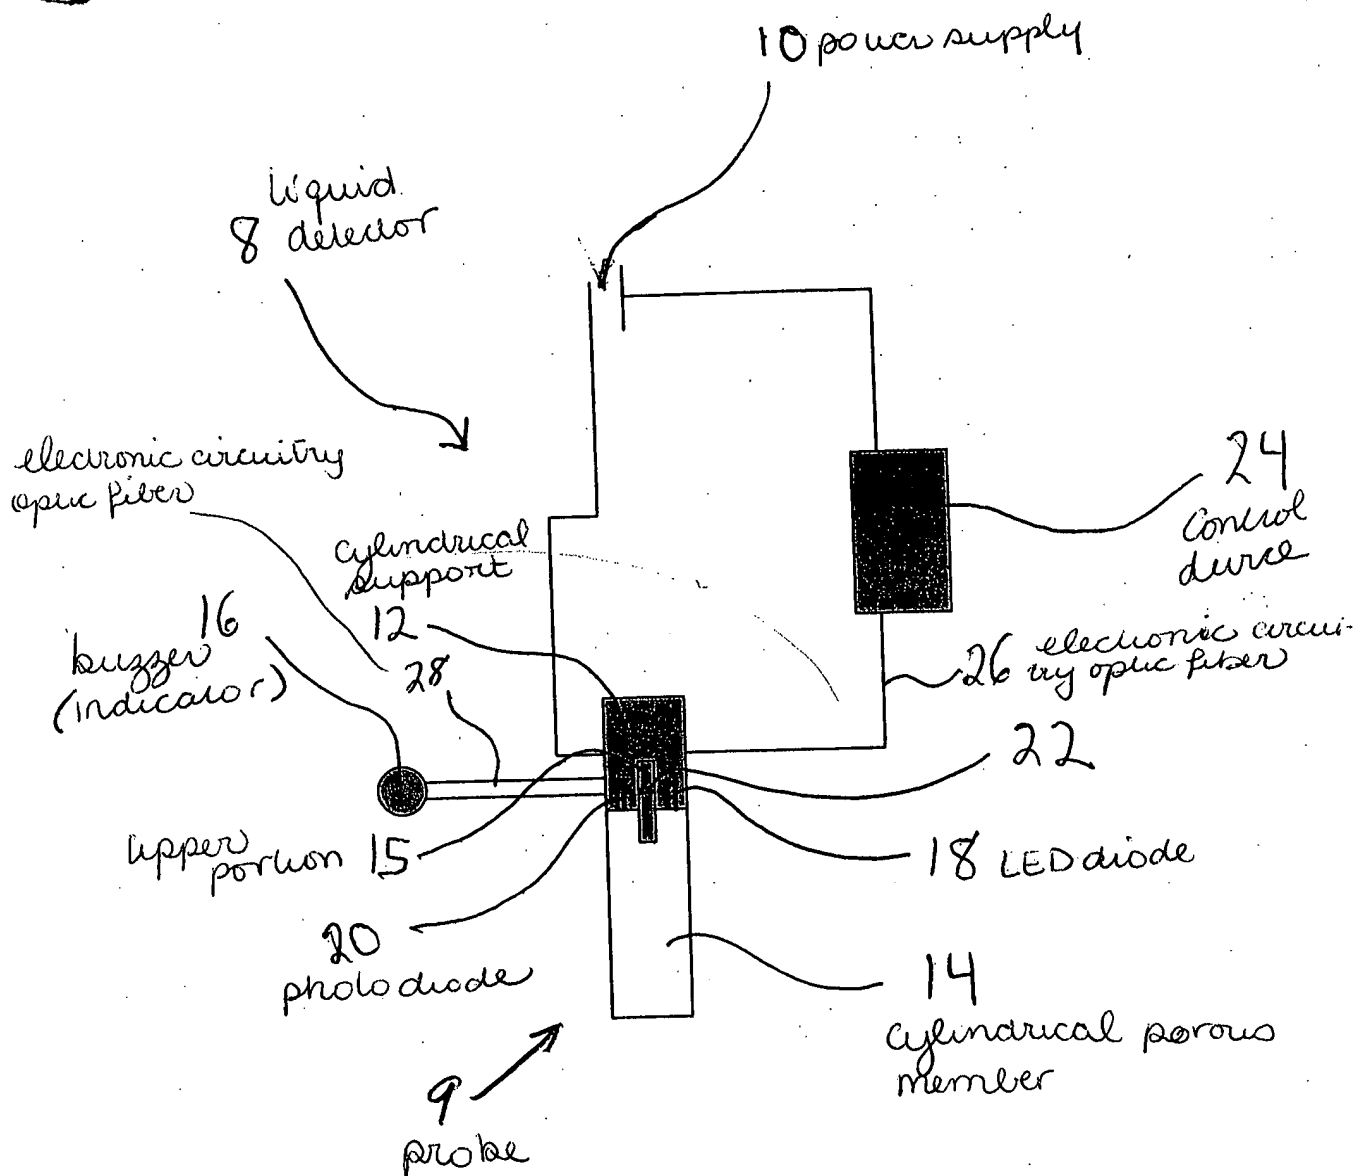 10 power supply
liquid
8 detector
electronic circuitry
optic fiber
cylindrical
support
12
16
buzzer
(indicator)
28
24
Control
device
26 electronic circui-
try optic fiber
22
upper
portion 15
18 LED diode
20
photodiode
14
cylindrical porous
member
9
probe